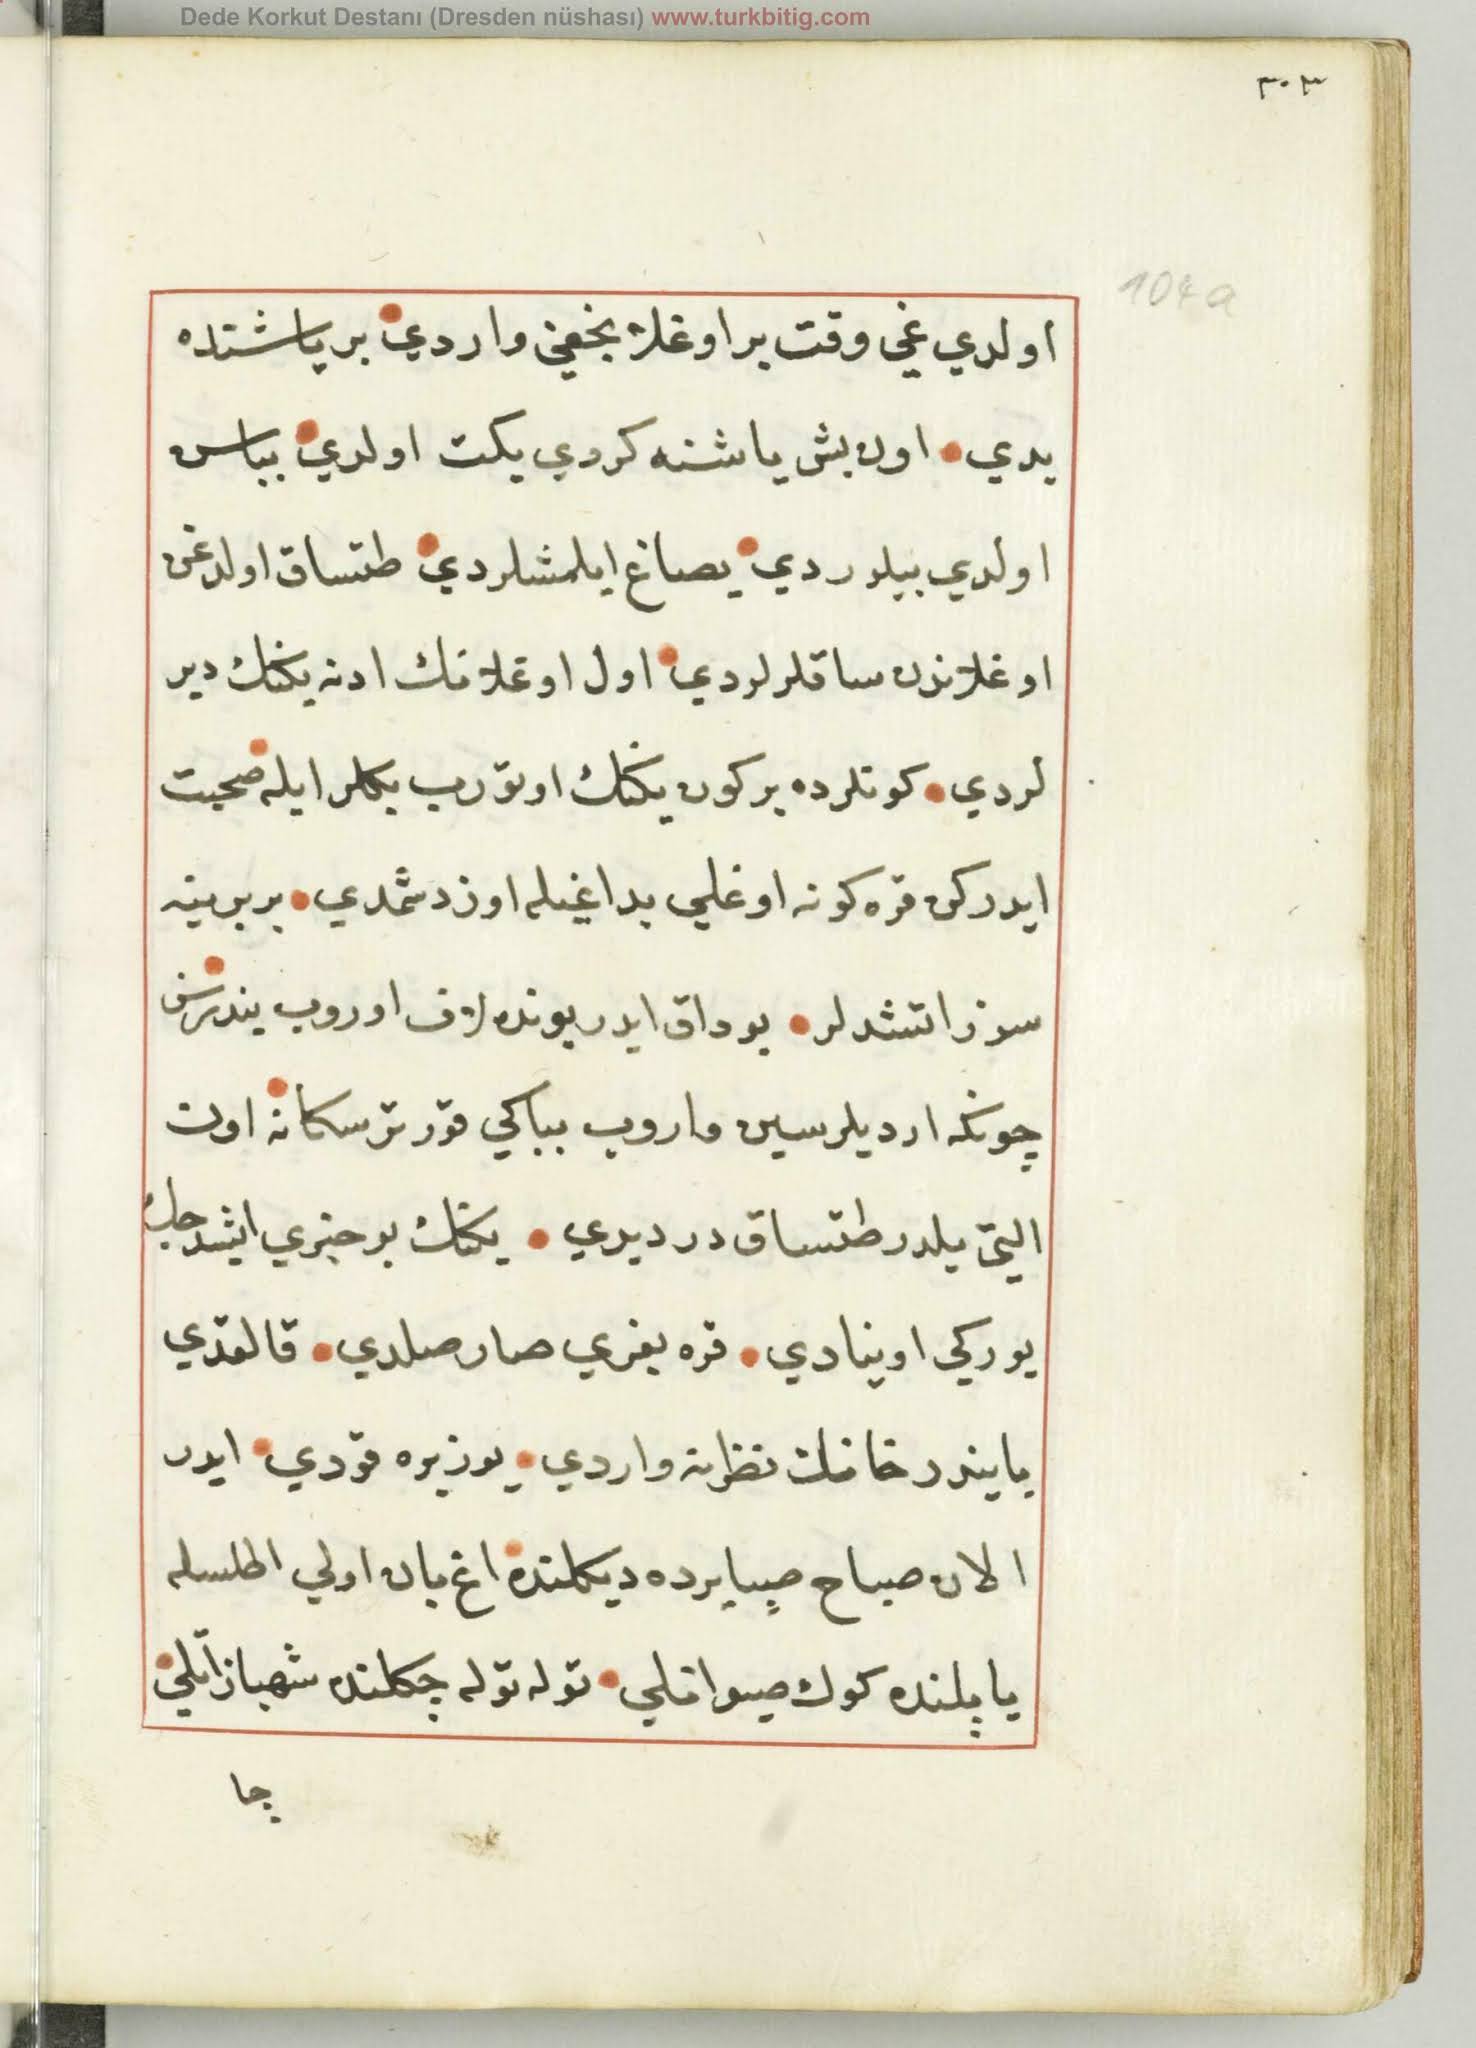 Dede Korkut Destanı (Dresden nüshası) www.turkbitig.com
٣٠٣
104a
اولدي غي وقت بر اوغلانجغی واردي بر ياشنده
يدي اون بش ياشنه كردي يكت اولدي بباسن
اولدي بيلوردي يصاغ ايلمشلردي طتساق اولدغن
اوغلاندن ساقلرلردي اول اوغلانك ادنه يكنك دير
لردي كونلرده بر كون يكنك اوتورب بكلر ايله صحبت
ايدركن قره كونه اوغلي بداغيله اوزدشمدي بر برينه
سوز اتشدلر بوداق ايدر بونده لاف اوروب يندرسن
چونكه ار ديلرسين واروب بباكي قورترسكانه اون
التي يلدر طتساق در ديدي يكنك بو خبري ايشدجك
يوركي اوينادي قره بغري صارصلدي قالقدي
بايندر خانك نظرينه واردي يوز يره قودي ايدر
الان صباح صپا يرده ديكلنده اغ بان اولي اطلسله
ياپلنده كوك صيوانلي توله توله چكلنده شهباز اتلي
چا